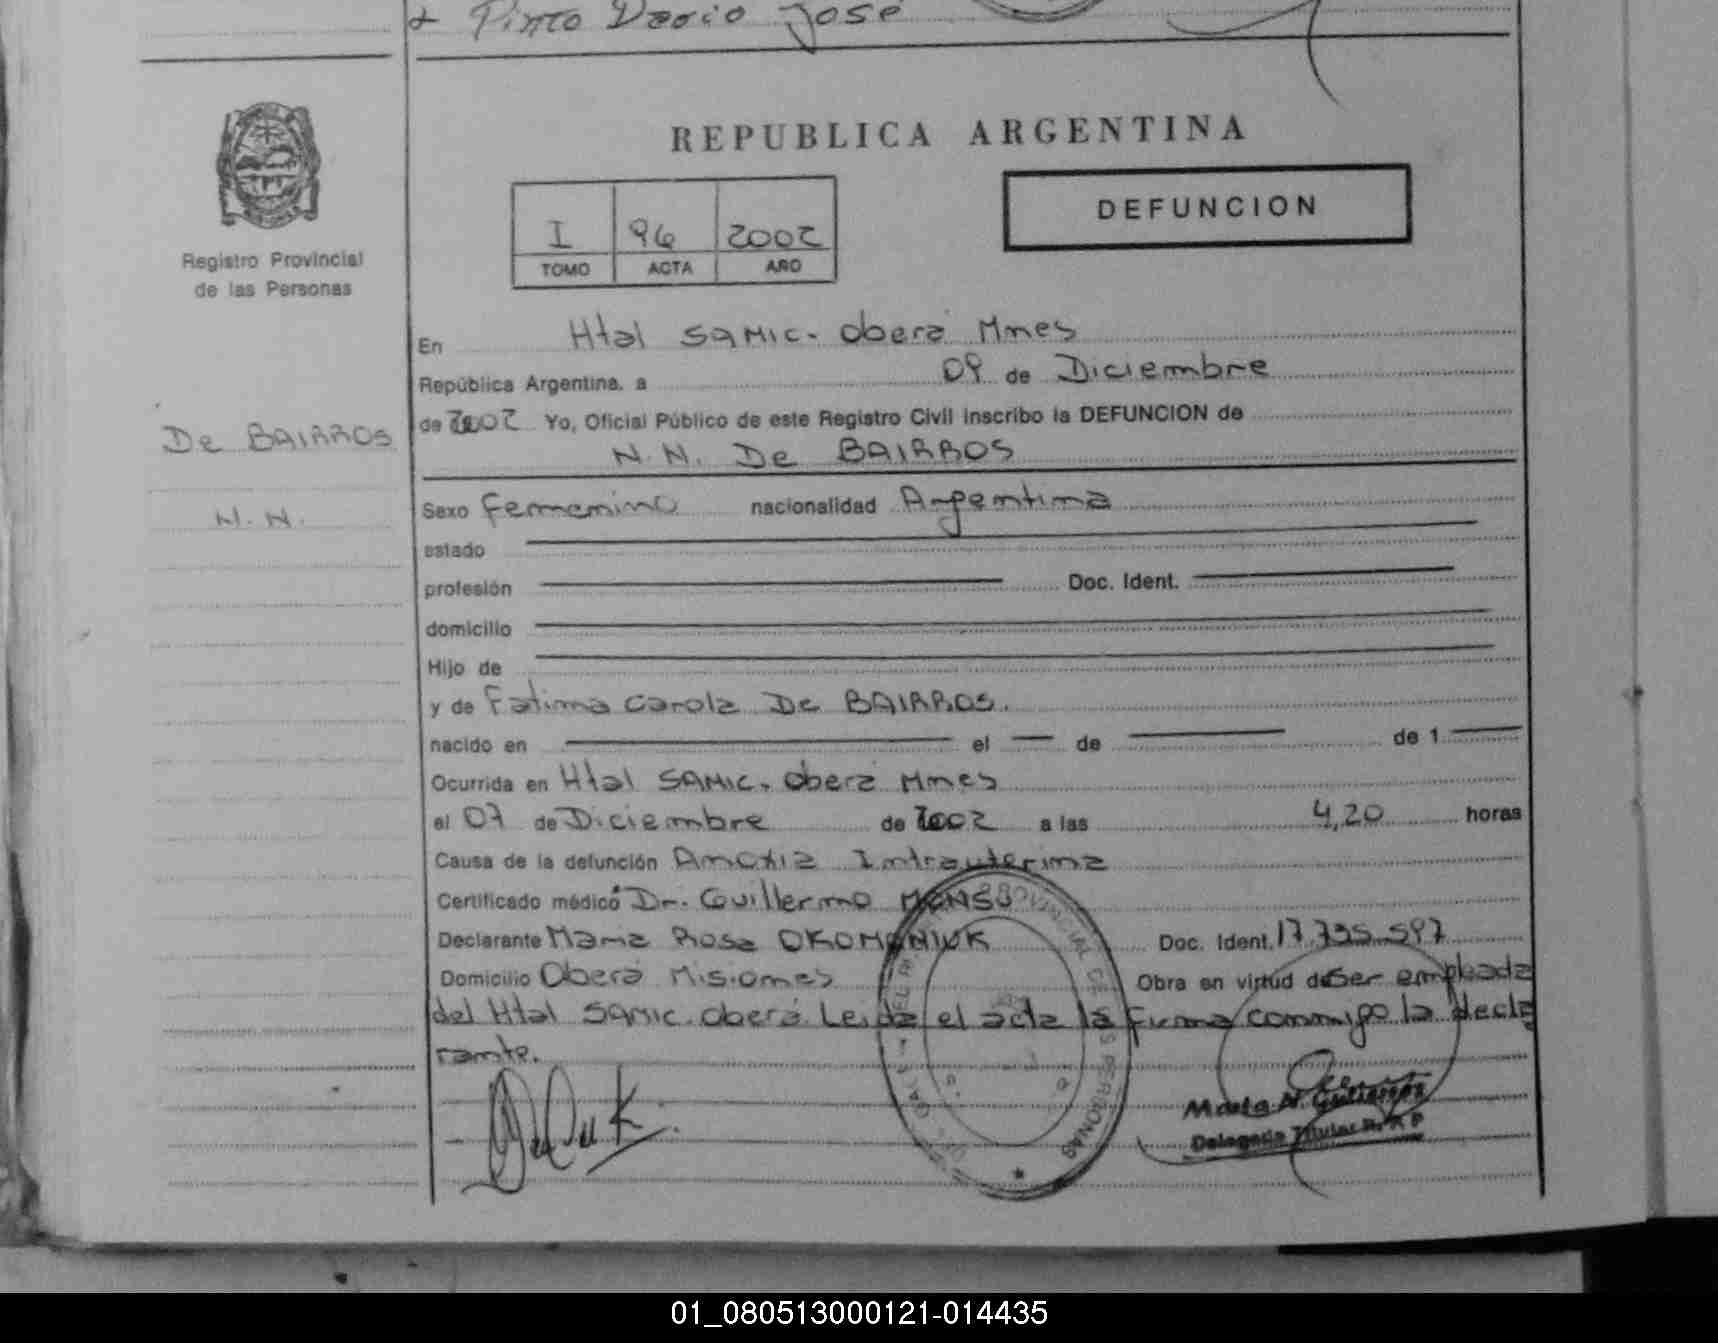 & Pinto Dario José
REPUBLICA ARGENTINA
DEFUNCION
I 96 2002
TOMO ACTA AÑO
Registro Provincial
de las Personas
En Htal SAMIC. Oberá Mnes
República Argentina, a 09 de Diciembre
de 2002 Yo, Oficial Público de este Registro Civil inscribo la DEFUNCION de
De BAIRROS
N.N. De BAIRROS
N.N.
Sexo Femenino nacionalidad Argentina
estado
profesión Doc. Ident.
domicilio
Hijo de
y de Fatima Carola De BAIRROS.
nacido en el de de 1
Ocurrida en Htal SAMIC. Oberá Mnes
el 07 de Diciembre de 2002 a las 4,20 horas
Causa de la defunción Anoxia Intrauterina
Certificado médico Dr. Guillermo
Declarante Maria Rosa OKOMANIUK Doc. Ident. 17.735.597
Domicilio Oberá Misiones Obra en virtud de Ser empleada
del Htal SAMIC. Oberá. Leida el acta la firma conmigo la decla
rante.
PROVINCIAL DE LAS PERSONAS
Marta N. Gutierrez
Delegada Titular R. P. P
01_080513000121-014435